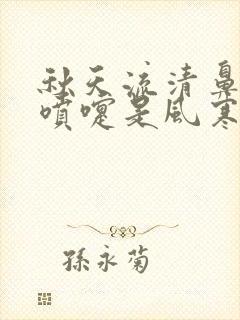 秋天流清鼻
噴嚏是風寒
孫永菊